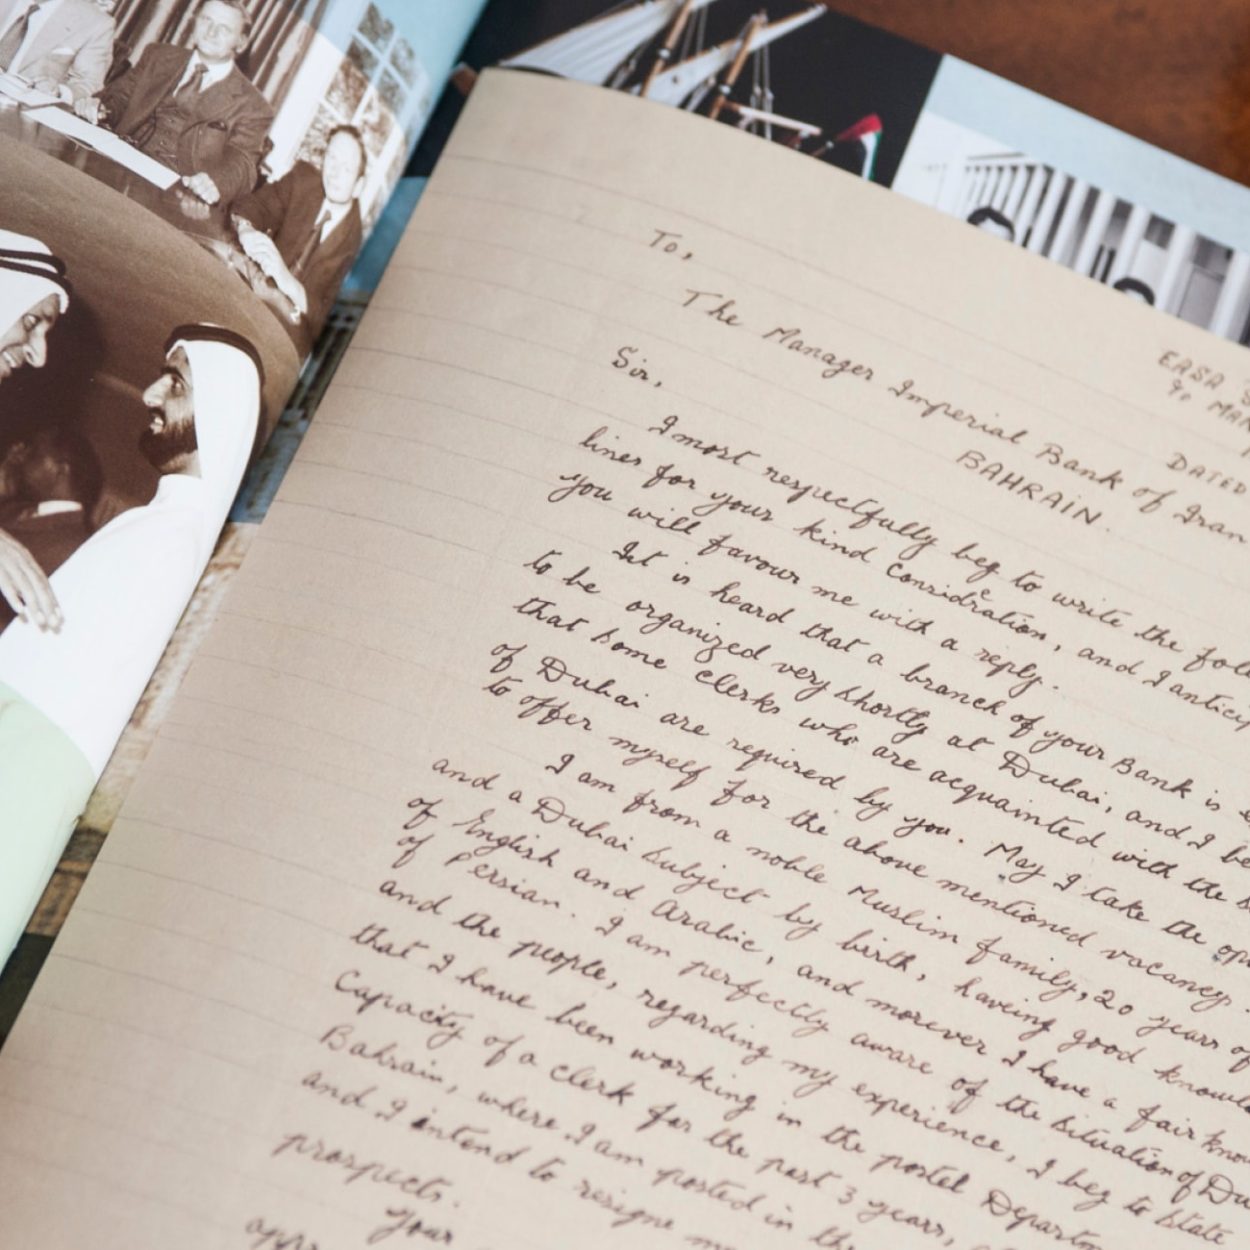 EASA
c/o MAN
DATED
To,
The Manager Imperial Bank of Iran
BAHRAIN.
Sir,
I most respectfully beg to write the foll
lines for your kind consideration, and I anticip
you will favour me with a reply.
It is heard that a branch of your Bank is
to be organized very shortly at Dubai, and I be
that some clerks who are acquainted with the
of Dubai are required by you. May I take the opp
to offer myself for the above mentioned vacancy.
I am from a noble Muslim family, 20 years of
and a Dubai subject by birth, haveing good knowle
of English and Arabic, and morever I have a fair kno
of Persian. I am perfectly aware of the situation of Du
and the people, regarding my experience, I beg to state
that I have been working in the postel Departm
Capacity of a clerk for the past 3 years,
Bahrain, where I am posted in the
and I intend to resigne
prospects.
Your
appr